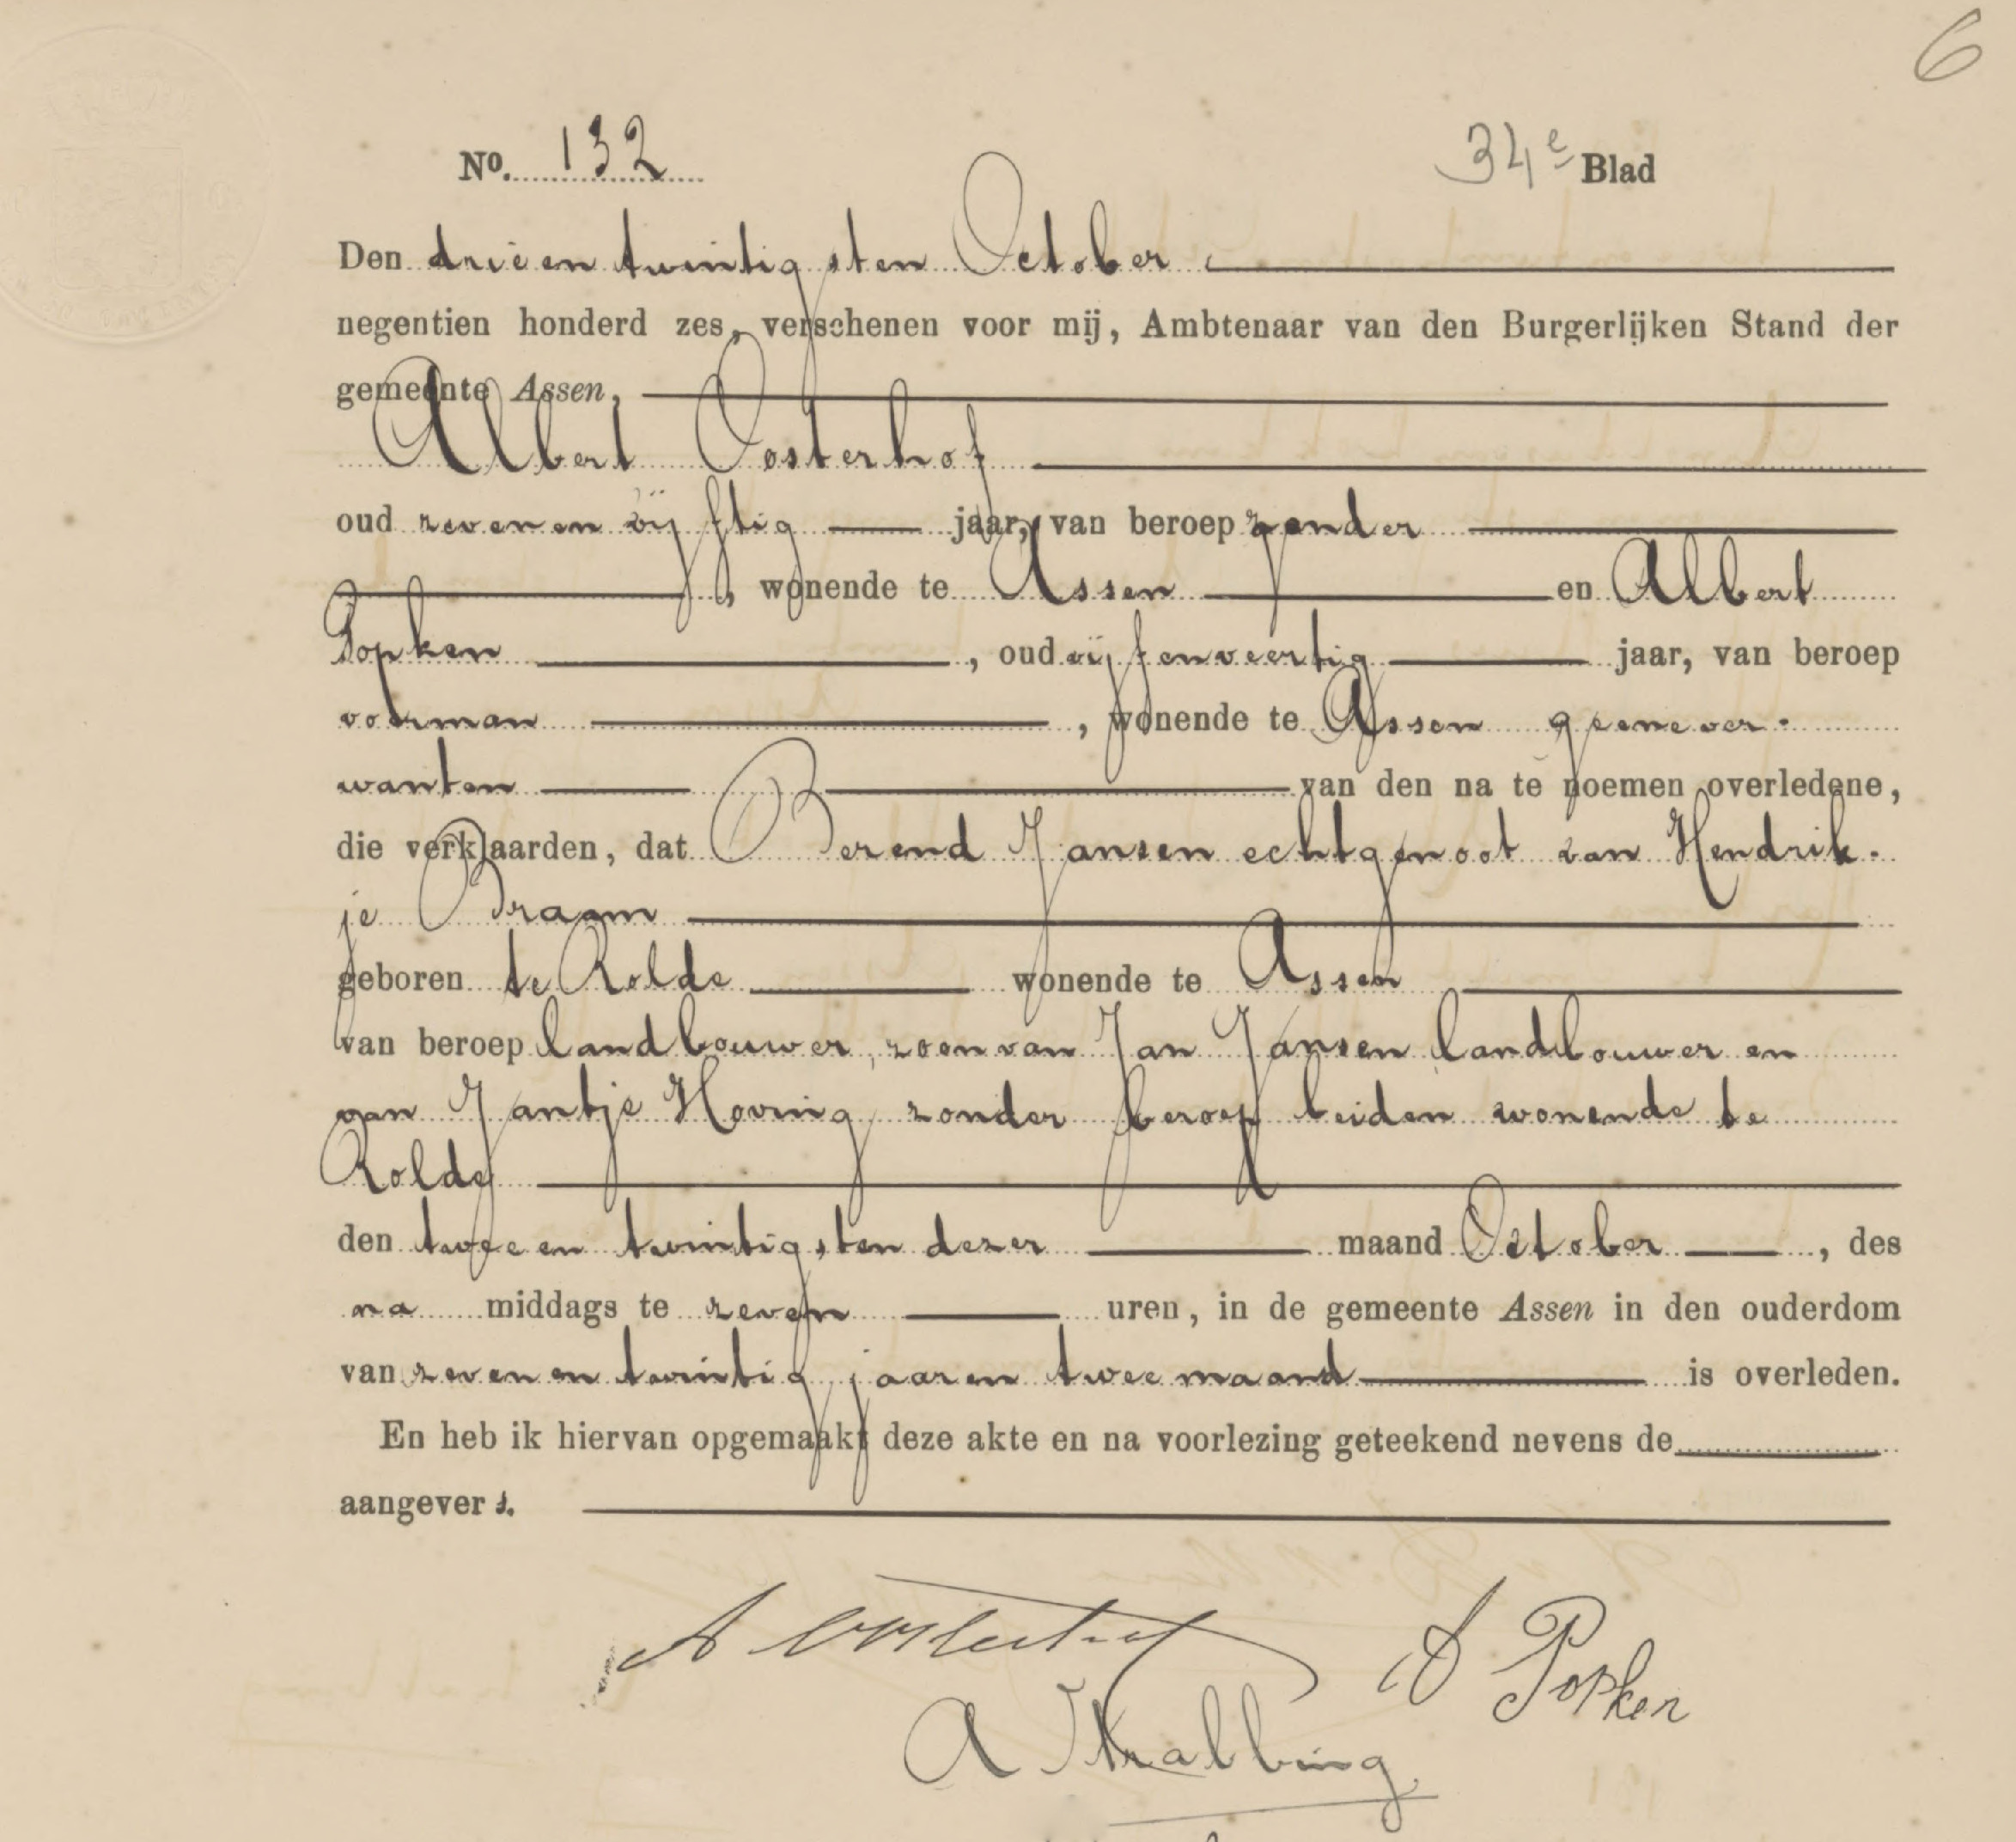 6
No. 132 34e Blad
Den drieentwintigsten October
negentien honderd zes, verschenen voor mij, Ambtenaar van den Burgerlijken Stand der
gemeente Assen,
Albert Oosterhof
oud zevenenvijftig jaar, van beroep zonder
, wonende te Assen en Albert
Popken , oud vijfenveertig jaar, van beroep
voerman , wonende te Assen geene ver-
wanten van den na te noemen overledene,
die verklaarden, dat Berend Jansen echtgenoot van Hendrik-
je Braam
geboren te Rolde wonende te Assen
van beroep landbouwer, zoon van Jan Jansen landbouwer en
van Jantje Hoving, zonder beroep beiden wonende te
Rolde
den tweeentwintigsten dezer maand October , des
na middags te zeven uren, in de gemeente Assen in den ouderdom
van zevenentwintig jaar en twee maand is overleden.
En heb ik hiervan opgemaakt deze akte en na voorlezing geteekend nevens de
aangevers.
A Oosterhof A Popken
A Strabbing